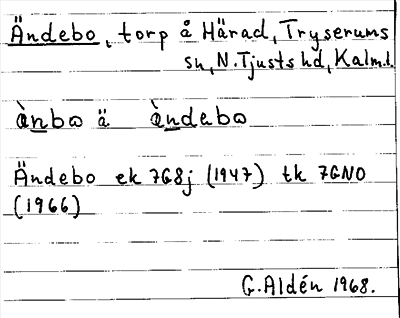 Ändebo, torp å Härad, Tryserums
sn, N. Tjusts hd, Kalm.l.
ànbo ä àndebo
Ändebo ek 7G8j (1947) tk 7GNO
(1966)
G. Aldén 1968.